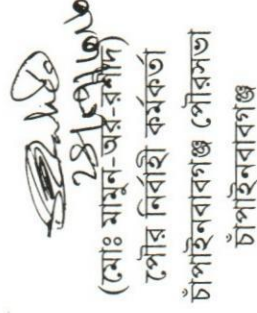 (মোঃ মামুন-অর-রশীদ)
পৌর নির্বাহী কর্মকর্তা
চাঁপাইনবাবগঞ্জ পৌরসভা
চাঁপাইনবাবগঞ্জ